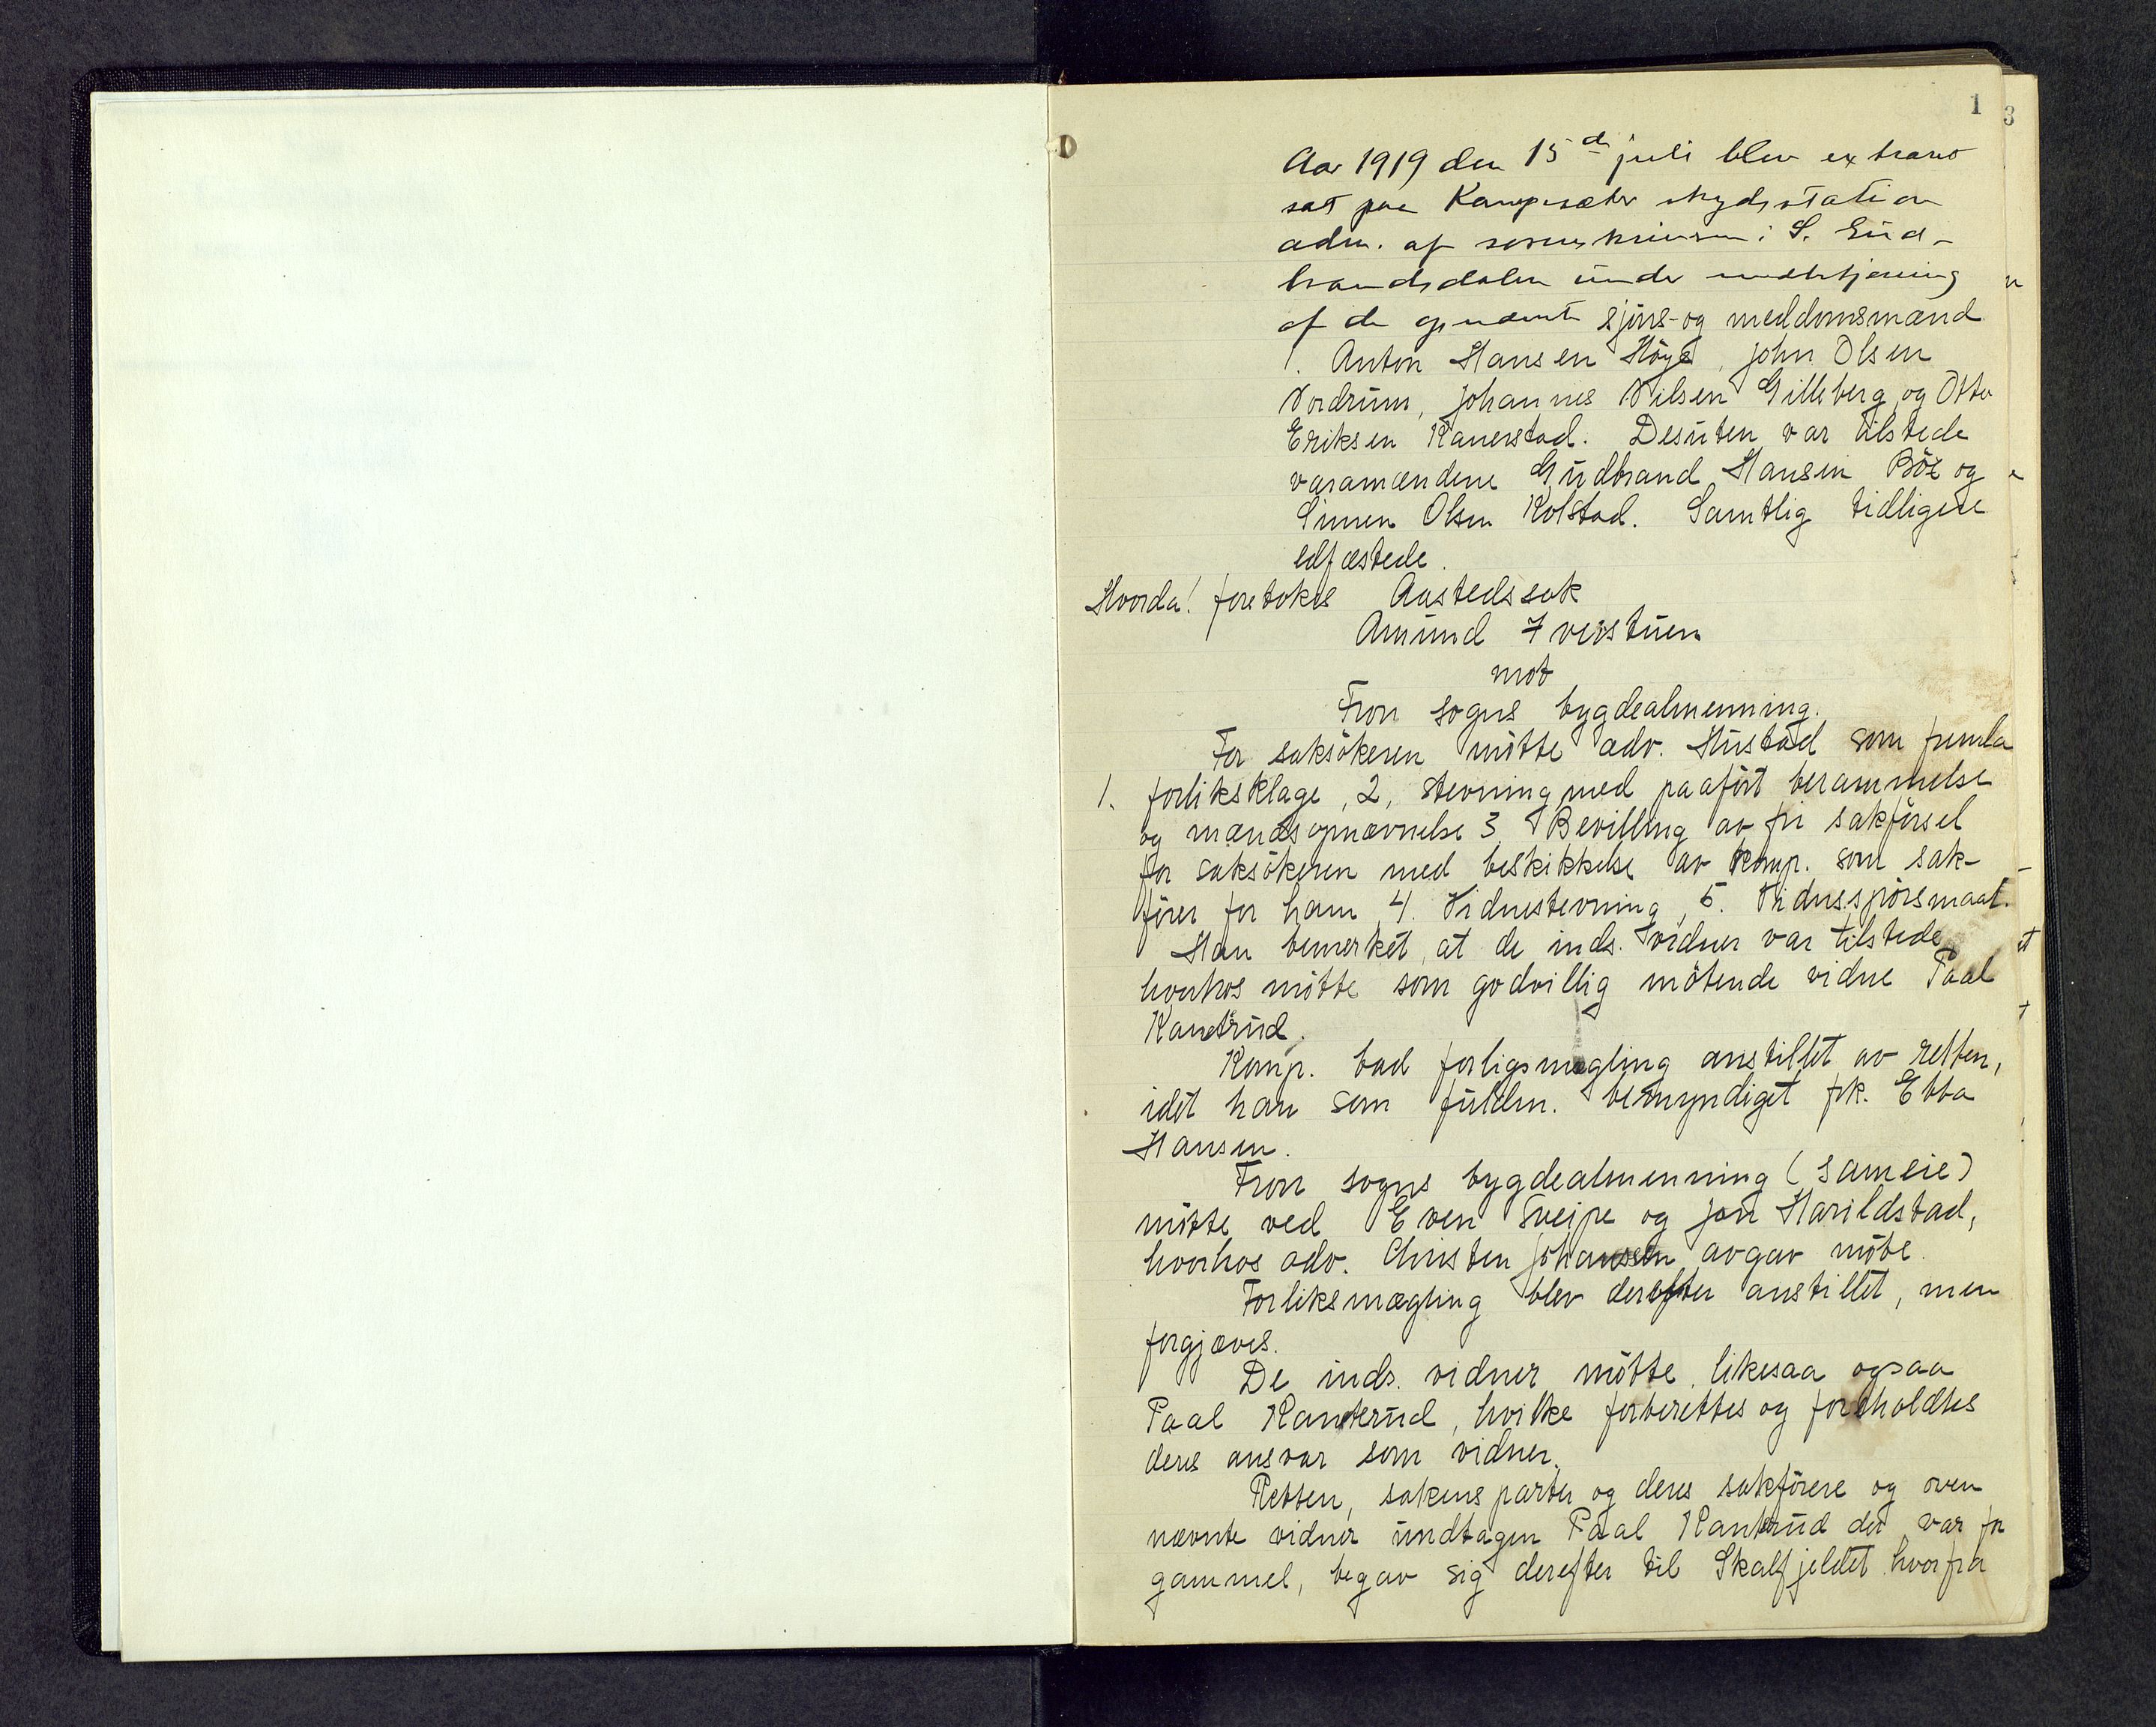 1 3
Aar 1919 den 15de juli blev extraret
sat paa Kampesæter skydsstation
adm. af sorenskriveren i S. Gud-
brandsdalen under medbetjening
af de opnævnte sjöns- og meddomsmænd
1. Anton Hansen Höge, John Olsen
Nordrum, Johannes Nilsen Gilleberg og Otto
Eriksen Kanerstad. Desuten var tilstede
varamændene Gudbrand Hansen Böe og
Simen Olsen Kolstad. Samtlig tidligere
edfæstede.
Hvorda! foretokes Aastedssak
Amund Iverstuen
mot
Fron sogns bygdealmenning.
For saksökeren mötte adv. Hustad som fremla
1. forliksklage, 2, stevning med paaført berammelse
og mændsopnævnelse 3. Bevilling av fri sakförsel
for saksökeren med beskikkelse av komp. som sak-
förer for ham 4. Vidnestevning, 5. Vidnespörsmaal.
Han bemerket, at de inds. vidner var tilstede
hvorhos mötte som godvillig mötende vidne Paal
Kanterud.
Komp. bad forligsmægling anstillet av retten,
idet han som fuldm. bemyndiget frk. Ebba
Hansen.
Fron sogns bygdealmenning (sameie)
mötte ved Even Sveipe og Jon Harildstad,
hvorhos adv. Christen Johanssen avgav möte.
Forliksmægling blev derefter anstillet, men
forgjæves.
De inds. vidner mötte likesaa ogsaa
Paal Kanterud, hvilke forberettes og foreholdtes
deres ansvar som vidner.
Retten, sakens parter og deres sakförere og oven
nævnte vidner undtagen Paal Kanterud der var for
gammel, begav sig derefter til Skalfjeldet hvorfra